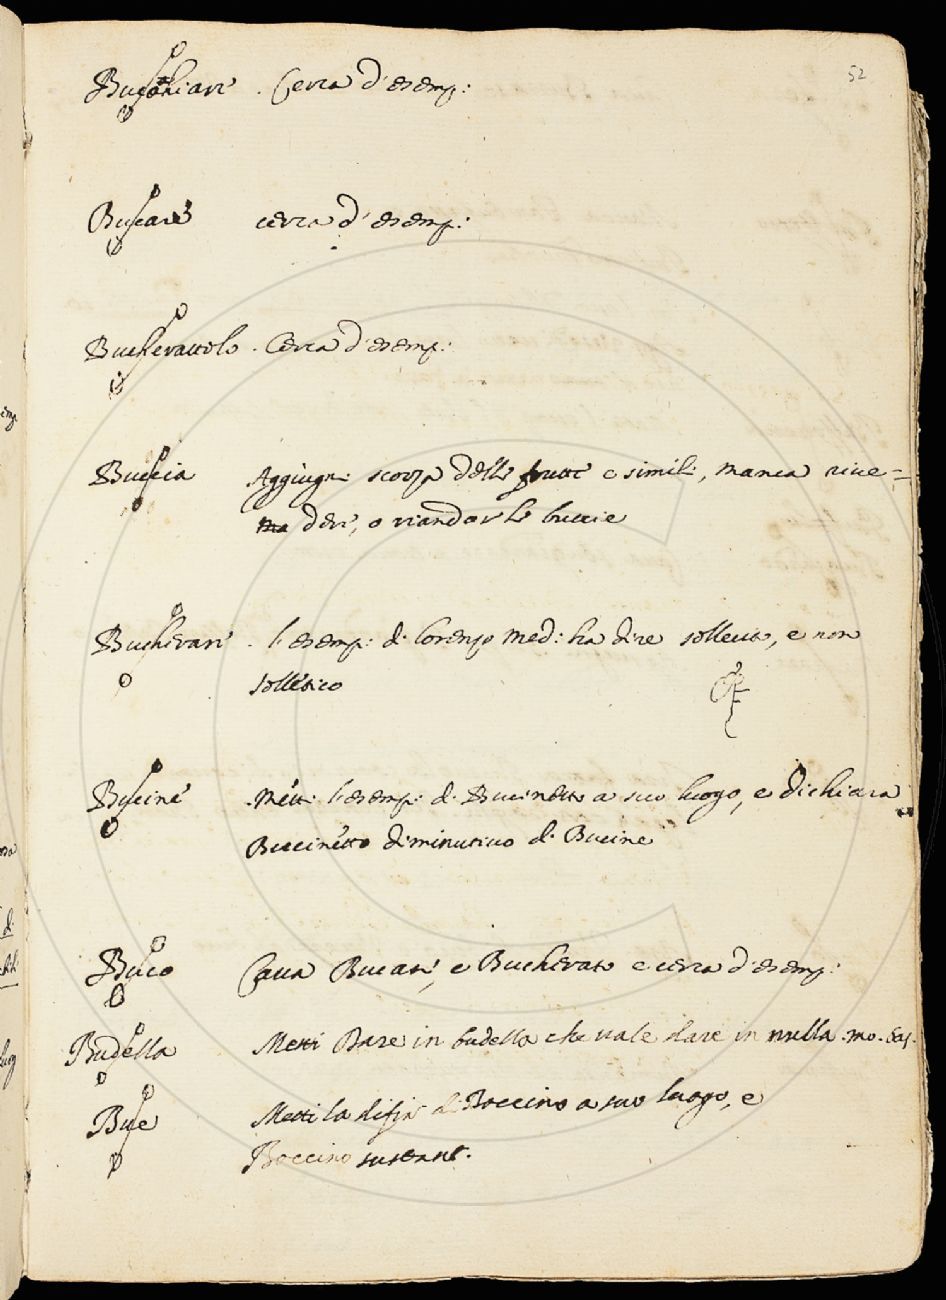 52
Bucchiare . Cerca d'esemp:
Bucare cerca d'esemp:
Bucherattolo . Cerca d'esemp:
Buccia Aggiugni scorza delle frutte e simili, manca rive=
dere, o riandar le buccie
Bucherare . l'esemp: di Lorenzo Med: ha dire sollecito, e non
solletico
Bucine . Metti l'esemp: di Bucinetto a suo luogo, e dichiara
Bucinetto diminutivo di Bucine
Buco Cava Bucare, e Bucherato e cerca d'esemp:
Budella Metti Dare in budella che vale dare in nulla . mo. bas.
Bue Metti la difin: di Boccino a suo luogo, e
Boccino sustant.